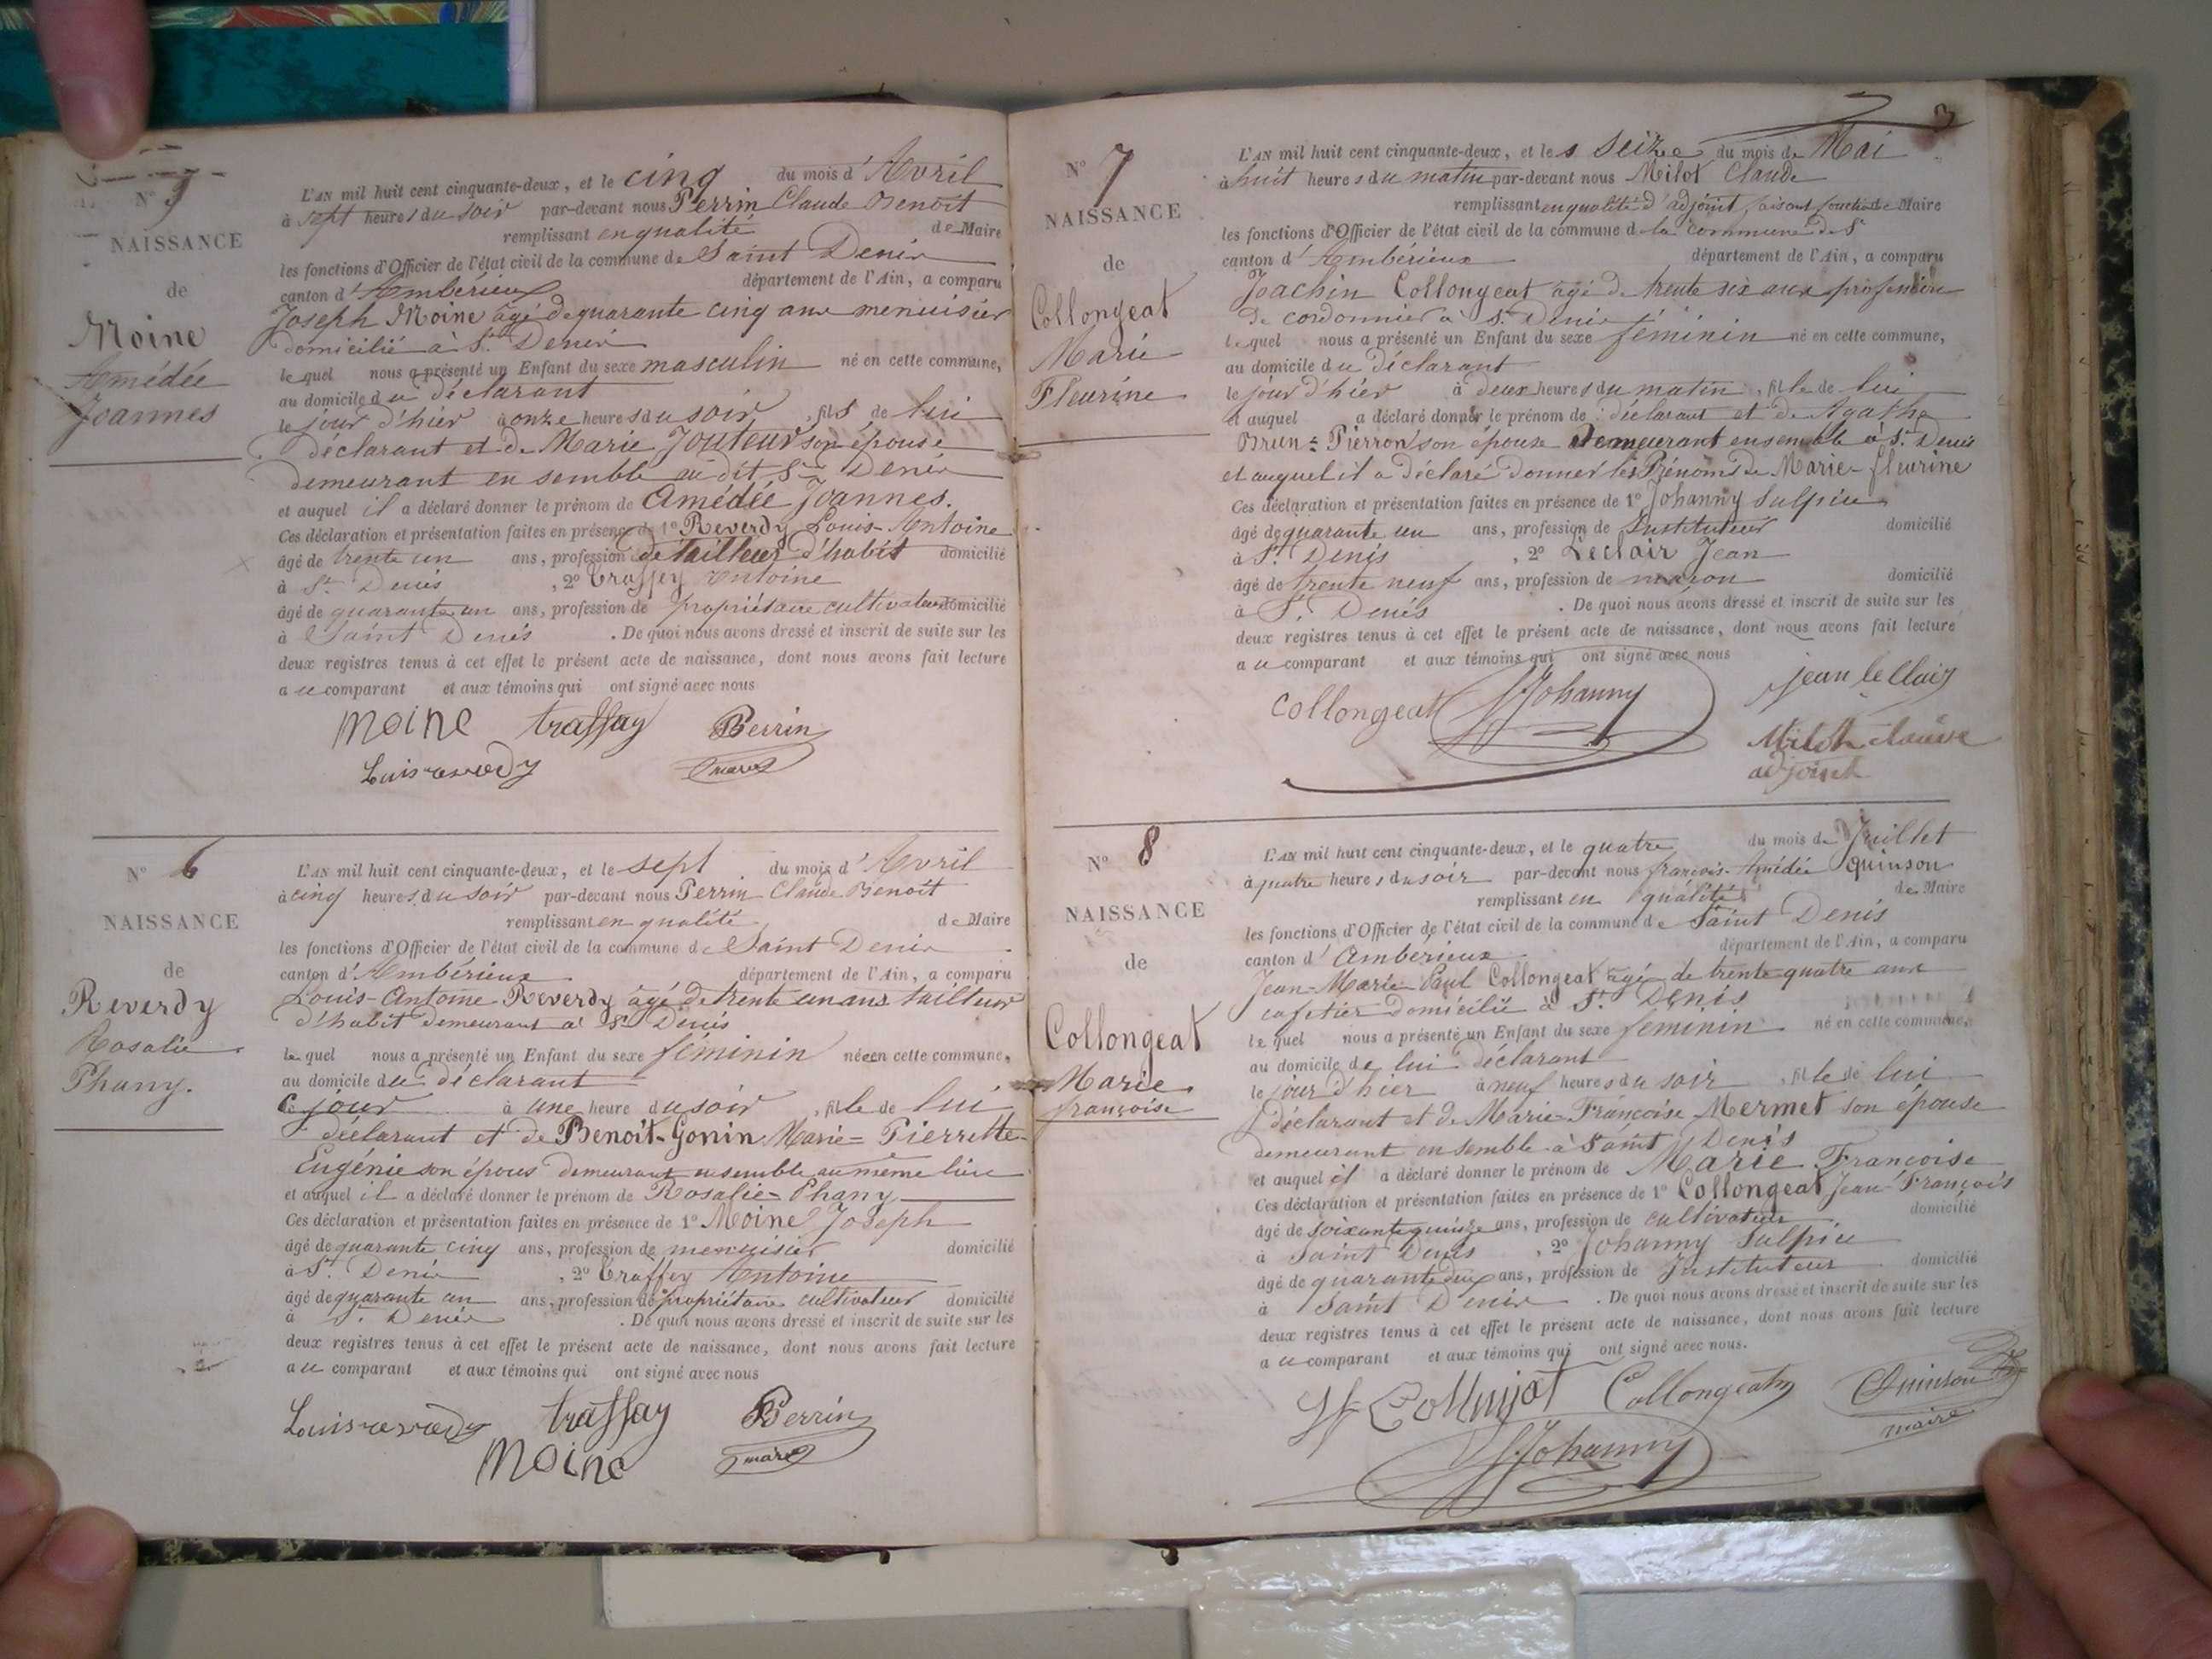 N° 5
NAISSANCE
de
Moine
Amédée
Joannes
L'AN mil huit cent cinquante-deux, et le cinq du mois d'Avril
à sept heures du soir par-devant nous Perrin Claude Benoit
remplissant en qualité de Maire
les fonctions d'Officier de l'état civil de la commune de Saint Denis
canton d'Ambérieux département de l'Ain, a comparu
Joseph Moine âgé de quarante cinq ans menuisier
domicilié à St Denis
lequel nous a présenté un Enfant du sexe masculin né en cette commune,
au domicile du déclarant
le jour d'hier à onze heures du soir, fils de lui
déclarant et de Marie Jouteur son épouse
demeurant en semble au dit St Denis
et auquel il a déclaré donner le prénom de Amédée Joannes.
Ces déclaration et présentation faites en présence de 1° Reverdy Louis-Antoine
âgé de trente un ans, profession de tailleur d'habit domicilié
à St Denis, 2° Traffey Antoine
âgé de quarante un ans, profession de propriétaire cultivateur domicilié
à Saint Denis. De quoi nous avons dressé et inscrit de suite sur les
deux registres tenus à cet effet le présent acte de naissance, dont nous avons fait lecture
au comparant et aux témoins qui ont signé avec nous
Moine traffay Perrin
maire
N° 6
NAISSANCE
de
Reverdy
Rosalie
Phany.
L'AN mil huit cent cinquante-deux, et le sept du mois d'Avril
à cinq heures du soir par-devant nous Perrin Claude Benoit
remplissant en qualité de Maire
les fonctions d'Officier de l'état civil de la commune de Saint Denis
canton d'Ambérieux département de l'Ain, a comparu
Louis-Antoine Reverdy âgé de trente un ans tailleur
d'habit demeurant à St Denis
lequel nous a présenté un Enfant du sexe féminin née en cette commune,
au domicile du déclarant
Ce jour à une heure du soir, fille de lui
déclarant et de Benoit-Gonin Marie=Pierrette
Eugénie son épous demeurant ensemble au même lieu
et auquel il a déclaré donner le prénom de Rosalie=Phany
Ces déclaration et présentation faites en présence de 1° Moine Joseph
âgé de quarante cinq ans, profession de menuisier domicilié
à St Denis, 2° Traffey Antoine
âgé de quarante un ans, profession de propriétaire cultivateur domicilié
à St Denis. De quoi nous avons dressé et inscrit de suite sur les
deux registres tenus à cet effet le présent acte de naissance, dont nous avons fait lecture
au comparant et aux témoins qui ont signé avec nous
traffay Perrin
Moine maire
3
N° 7
NAISSANCE
de
Collongeat
Marie
Fleurine
L'AN mil huit cent cinquante-deux, et le s seize du mois de Mai
à huit heures du matin par-devant nous Milot Claude
remplissant en qualité d'adjoint, faisant fonction de Maire
les fonctions d'Officier de l'état civil de la commune de la commune de St
canton d'Ambérieux département de l'Ain, a comparu
Joachin Collongeat âgé de trente six ans profession
de cordonnier à St Denis
lequel nous a présenté un Enfant du sexe féminin né en cette commune,
au domicile du déclarant
le jour d'hier à deux heures du matin, fille de lui
et auquel a déclaré donner le prénom de : déclarant et de Agathe
Brun=Pierron son épouse demeurant ensemble à St Denis
et auquel il a déclaré donner les Prénoms de Marie-fleurine
Ces déclaration et présentation faites en présence de 1° Johanny Sulpice
âgé de quarante un ans, profession de Instituteur domicilié
à St Denis, 2° Leclair Jean
âgé de trente neuf ans, profession de maçon domicilié
à St Denis. De quoi nous avons dressé et inscrit de suite sur les
deux registres tenus à cet effet le présent acte de naissance, dont nous avons fait lecture
au comparant et aux témoins qui ont signé avec nous
Collongeat Johanny jean leClair
Milot claude
adjoint
N° 8
NAISSANCE
de
Collongeat
Marie
françoise
L'AN mil huit cent cinquante-deux, et le quatre du mois de Juillet
à quatre heures du soir par-devant nous françois-Amédée Quinson
remplissant en qualité de Maire
les fonctions d'Officier de l'état civil de la commune de Saint Denis
canton d'Ambérieux département de l'Ain, a comparu
Jean-Marie Paul Collongeat âgé de trente quatre ans
cafetier domicilié à St Denis
lequel nous a présenté un Enfant du sexe féminin né en cette commune,
au domicile de lui déclarant
le jour d'hier à neuf heures du soir, fille de lui
déclarant et de Marie=Françoise Mermet son épouse
demeurant ensemble à Saint Denis
et auquel il a déclaré donner le prénom de Marie Françoise
Ces déclaration et présentation faites en présence de 1° Collongeat Jean-François
âgé de soixante quinze ans, profession de cultivateur domicilié
à Saint Denis, 2° Johanny Sulpice
âgé de quarante deux ans, profession de Instituteur domicilié
à Saint Denis. De quoi nous avons dressé et inscrit de suite sur les
deux registres tenus à cet effet le présent acte de naissance, dont nous avons fait lecture
au comparant et aux témoins qui ont signé avec nous.
Collongeat Quinson
Johanny maire